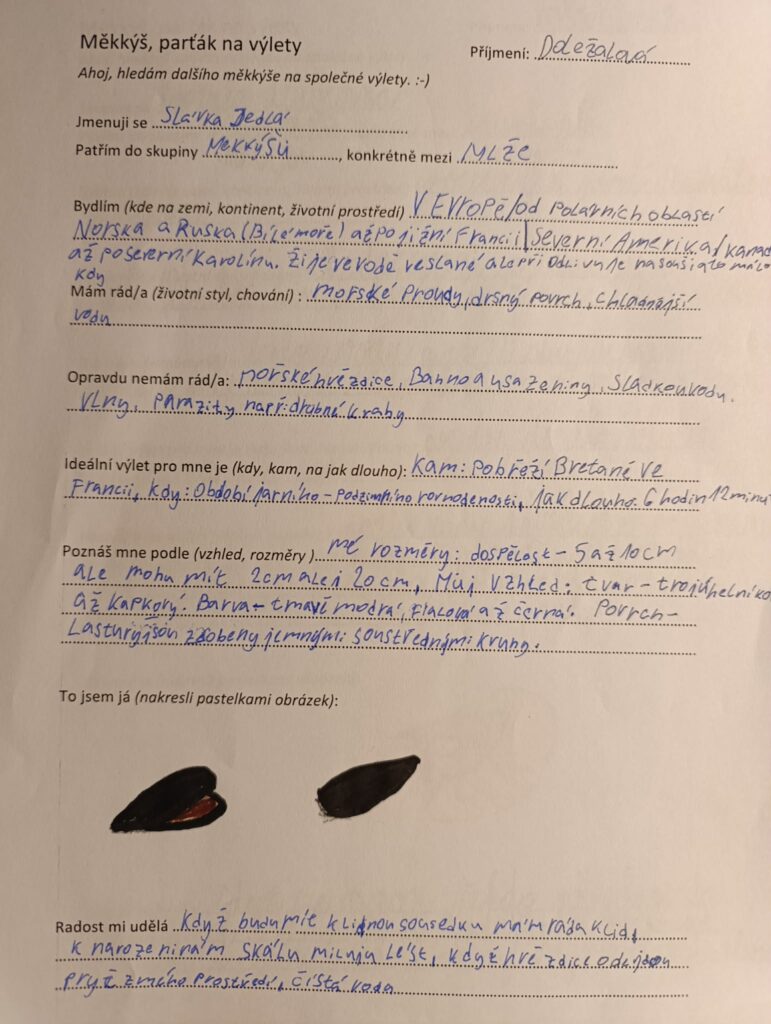 Měkkýš, parťák na výlety
Příjmení: Doležalová
Ahoj, hledám dalšího měkkýše na společné výlety. :-)
Jmenuji se Slávka Jedlá
Patřím do skupiny Měkkýšů, konkrétně mezi MLže
Bydlím (kde na zemi, kontinent, životní prostředí) V Evropě/od polárních oblastí
Norska a Ruska (Bílé moře) až po jižní Francii/Severní Amerika/kanad
až po severní Karolínu. žije ve vodě ve slané ale při odlivu je na souši ato málo
kdy
Mám rád/a (životní styl, chování) : mořské proudy, drsný povrch, chladnější
vodu
Opravdu nemám rád/a: mořské hvězdice, Bahno a usazeniny, sladkou vodu.
vlny, parazity např. drobné kraby
Ideální výlet pro mne je (kdy, kam, na jak dlouho): Kam: pobřeží Bretaně ve
Francii, kdy: Období jarního-podzimního rovnodenosti, jak dlouho. 6 hodin 12 minu
Poznáš mne podle (vzhled, rozměry ) mé rozměry: dospělost - 5 až 10cm
ale mohu mít 2cm ale i 20cm, Můj vzhled: tvar - trojúhelníko
až kapkový. Barva - tmavě modrá, fialová až černá. Povrch-
Lastury jsou zdobeny jemnými soustřednými kruhy.
To jsem já (nakresli pastelkami obrázek):
Radost mi udělá když budu mít klidnou sousedku mám ráda klid,
k narozeninám skálu miluju lést, když hvězdice odejdou
pryč z mého prostředí, čistá voda